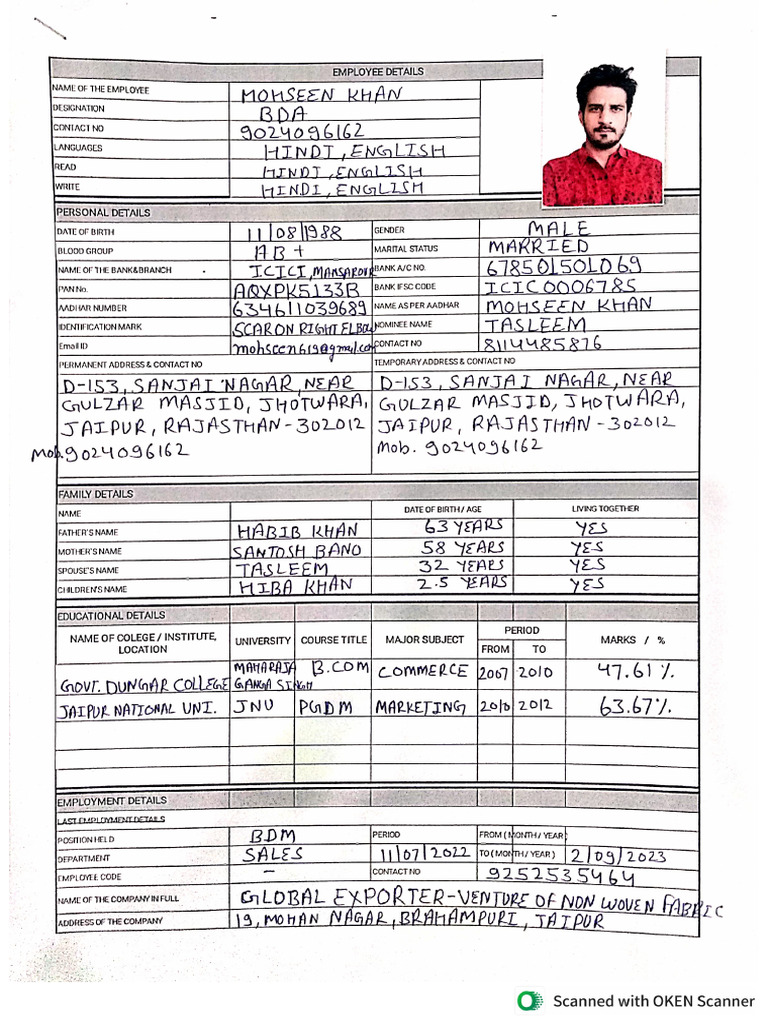 EMPLOYEE DETAILS
NAME OF THE EMPLOYEE MOHSEEN KHAN
DESIGNATION BDA
CONTACT NO 9024096162
LANGUAGES HINDI, ENGLISH
READ HINDI, ENGLISH
WRITE HINDI, ENGLISH
PERSONAL DETAILS
DATE OF BIRTH 11/08/1988 GENDER MALE
BLOOD GROUP AB+ MARITAL STATUS MARRIED
NAME OF THE BANK&BRANCH ICICI, MANSAROVR BANK A/C NO. 678501501069
PAN No. AQXPK5133B BANK IFSC CODE ICIC0006785
AADHAR NUMBER 634611039689 NAME AS PER AADHAR MOHSEEN KHAN
IDENTIFICATION MARK SCAR ON RIGHT ELBOW NOMINEE NAME TASLEEM
Email ID mohseen619@gmail.com CONTACT NO 8114485876
PERMANENT ADDRESS & CONTACT NO TEMPORARY ADDRESS & CONTACT NO
D-153, SANJAI NAGAR, NEAR D-153, SANJAI NAGAR, NEAR
GULZAR MASJID, JHOTWARA, GULZAR MASJID, JHOTWARA,
JAIPUR, RAJASTHAN-302012 JAIPUR, RAJASTHAN-302012
Mob. 9024096162 Mob. 9024096162
FAMILY DETAILS
NAME DATE OF BIRTH / AGE LIVING TOGETHER
FATHER'S NAME HABIB KHAN 63 YEARS YES
MOTHER'S NAME SANTOSH BANO 58 YEARS YES
SPOUSE'S NAME TASLEEM 32 YEARS YES
CHILDREN'S NAME HIBA KHAN 2.5 YEARS YES
EDUCATIONAL DETAILS
NAME OF COLEGE / INSTITUTE, LOCATION UNIVERSITY COURSE TITLE MAJOR SUBJECT PERIOD FROM TO MARKS / %
GOVT. DUNGAR COLLEGE MAHARAJA GANGA SINGH B.COM COMMERCE 2007 2010 47.61%
JAIPUR NATIONAL UNI. JNU PGDM MARKETING 2010 2012 63.67%
EMPLOYMENT DETAILS
LAST EMPLOYMENT DETAILS
POSITION HELD BDM PERIOD FROM (MONTH / YEAR)
DEPARTMENT SALES 11/07/2022 TO (MONTH / YEAR) 2/09/2023
EMPLOYEE CODE - CONTACT NO 9252535464
NAME OF THE COMPANY IN FULL GLOBAL EXPORTER-VENTURE OF NON WOVEN FABRIC
ADDRESS OF THE COMPANY 19, MOHAN NAGAR, BRAHAMPURI, JAIPUR
Scanned with OKEN Scanner